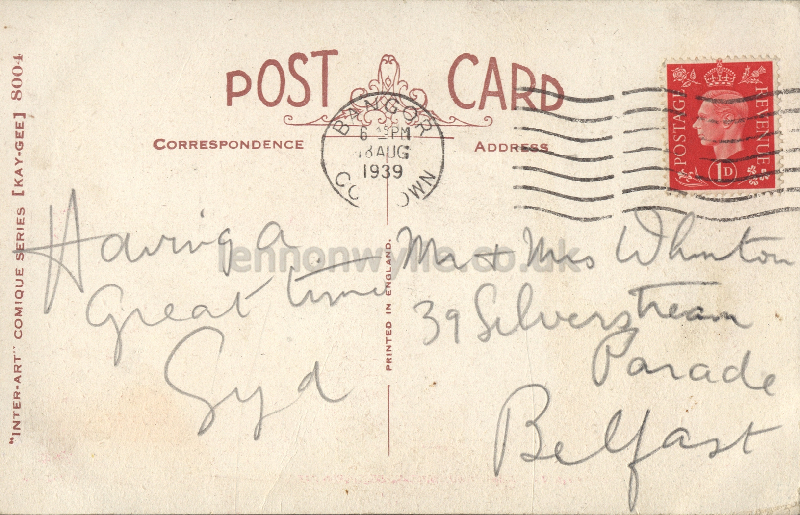 POST CARD
CORRESPONDENCE
ADDRESS
BANGOR
6 PM
18 AUG
1939
CO DOWN
POSTAGE
REVENUE
1D
"INTER-ART" COMIQUE SERIES [KAY-GEE] 8004
PRINTED IN ENGLAND.
Having a
Great time
Syd
Mr & Mrs Whinton
39 Silverstream
Parade
Belfast
lennonwylie.co.uk